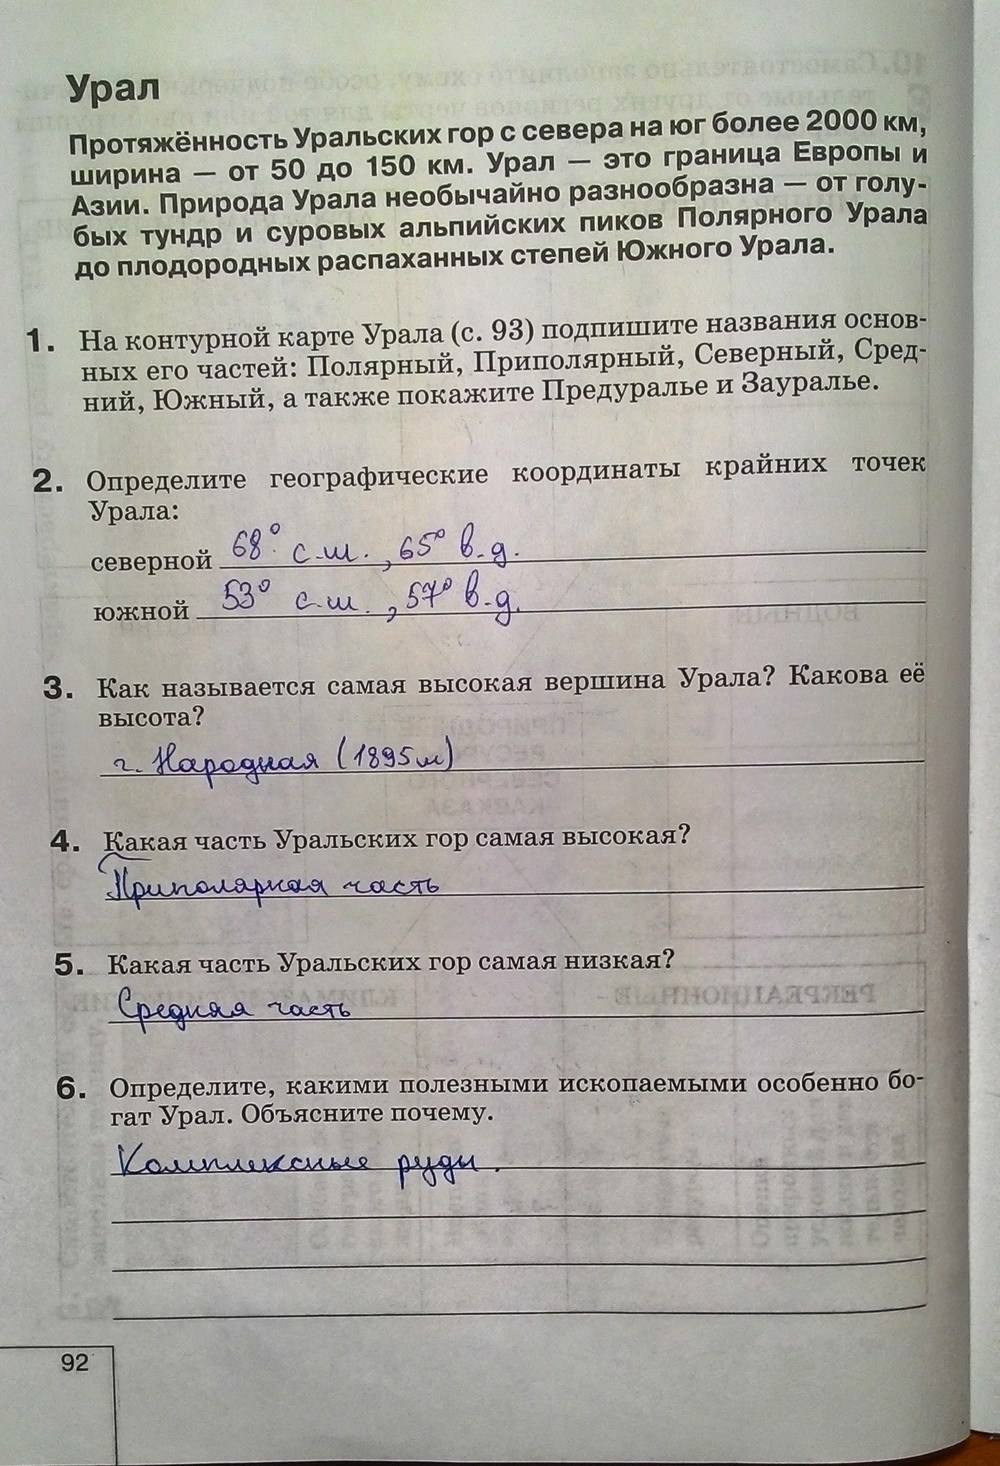 Урал
Протяжённость Уральских гор с севера на юг более 2000 км,
ширина — от 50 до 150 км. Урал — это граница Европы и
Азии. Природа Урала необычайно разнообразна — от голу-
бых тундр и суровых альпийских пиков Полярного Урала
до плодородных распаханных степей Южного Урала.
1. На контурной карте Урала (с. 93) подпишите названия основ-
ных его частей: Полярный, Приполярный, Северный, Сред-
ний, Южный, а также покажите Предуралье и Зауралье.
2. Определите географические координаты крайних точек
Урала:
северной 68° с.ш., 65° в.д.
южной 53° с.ш., 57° в.д.
3. Как называется самая высокая вершина Урала? Какова её
высота?
г. Народная (1895м)
4. Какая часть Уральских гор самая высокая?
Приполярная часть
5. Какая часть Уральских гор самая низкая?
Средняя часть
6. Определите, какими полезными ископаемыми особенно бо-
гат Урал. Объясните почему.
Комплексные руды.
92